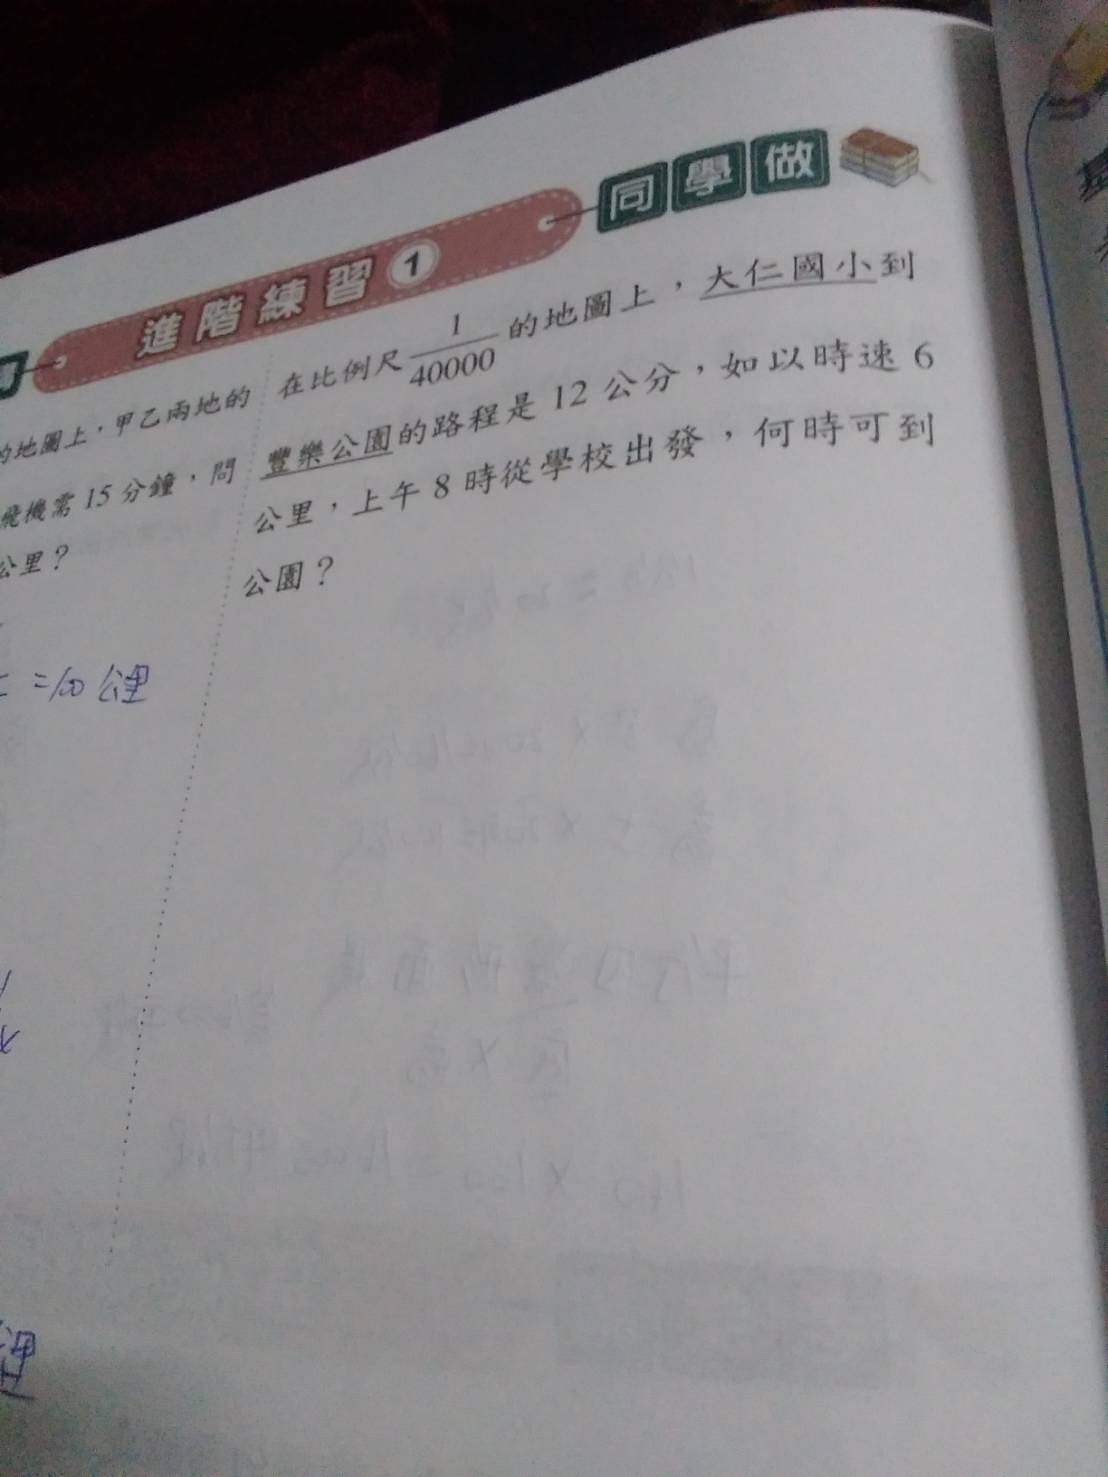 同學做
進階練習1
的地圖上，甲乙兩地的
飛機需15分鐘，問
公里？
=100公里
在比例尺1/40000的地圖上，大仁國小到
豐樂公園的路程是12公分，如以時速6
公里，上午8時從學校出發，何時可到
公園？